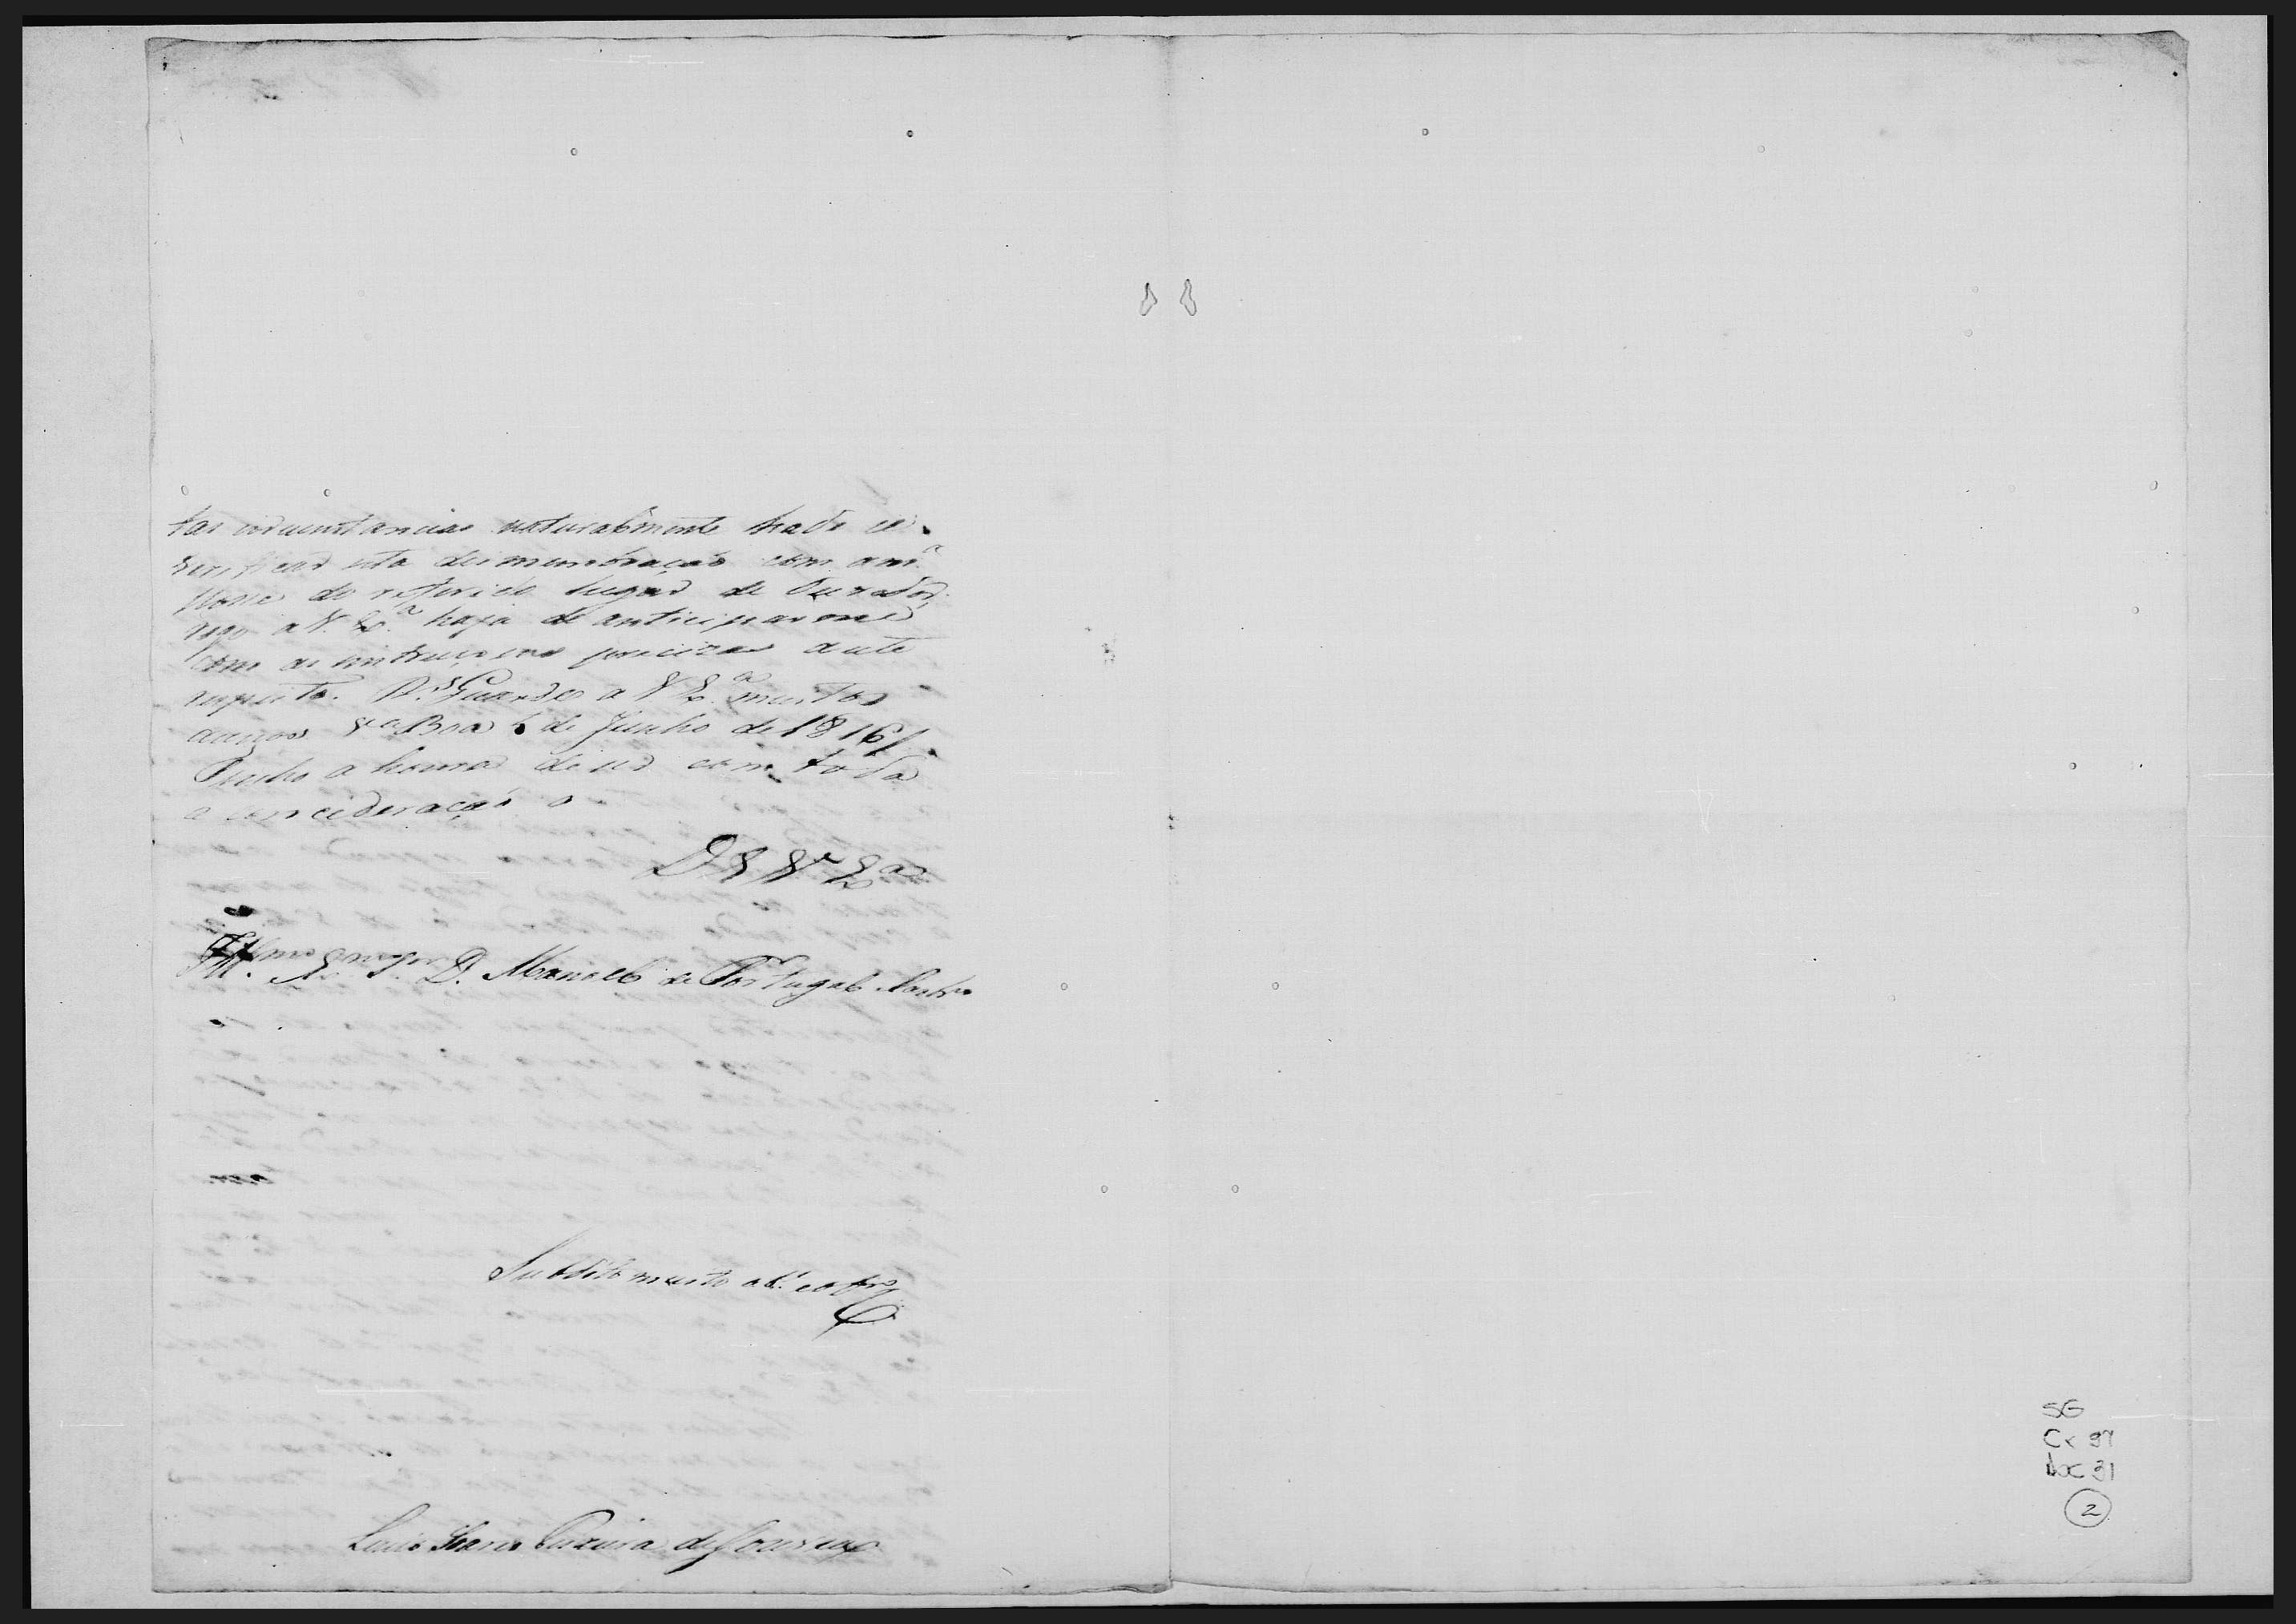 tas circunstancias naturalmente hade
verificar esta desmembração com a m.ª
posse do referido lugar de Ouvidor,
rogo a V. Ex.ª haja de anticiparme
com as instruçoens precizas a este
respeito. D.s Guarde a V Ex.ª muitos
annos V.ª Boa 6 de Junho de 1816/
Tenho a honra de ser com toda
a concideração o
De V Ex.ª
Ill.mo Ex.mo Sr. D. Manoel de Portugal Castro
Subdito muito
Luis Pereira de
SG
Cx 97
Doc 31
2